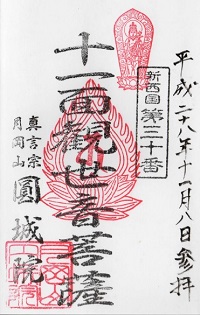 平成二十八年十一月八日参拝
新西国
第三十番
十一面観世音菩薩
真言宗
月岡山
圓城院